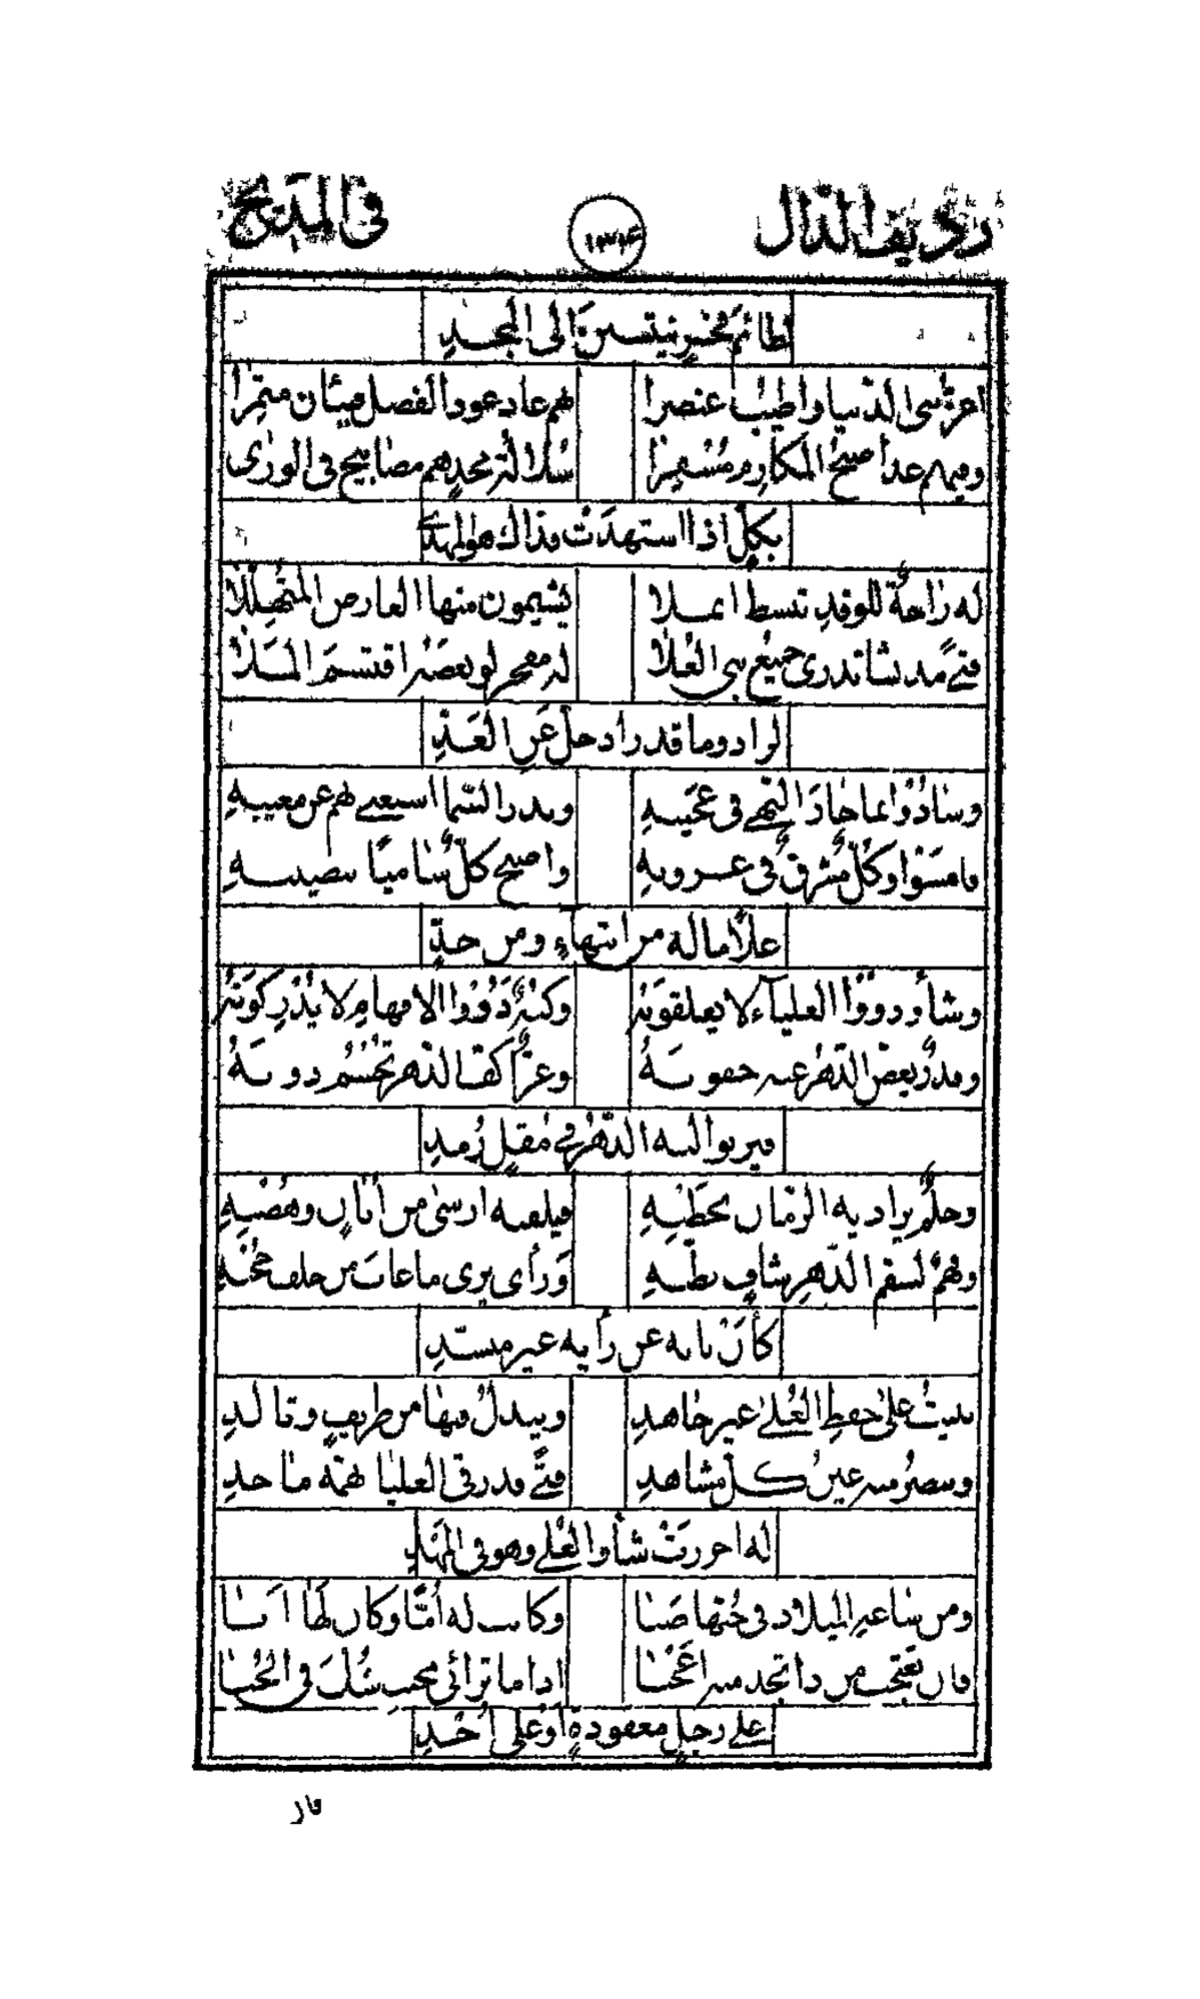 رديف الدال ١٣٤ في المديح
لطائم فخر ينتسبن الى المجد
اعز بني الدنيا واطيب عنصرا بهم عاد عود الفضل فينان مثمرا
ومنهم غدا صبح المكارم مسفرا سلالة مجد هم مصابيح في الورى
بكل اذا استهديت فذاك هو المهدي
له راحة للوفد تبسط انملا يشيمون منها العارض المتهللا
فتى مذ نشا تدري جميع بني العلا له مفخر لو بعضه اقتسم الملا
لزاد وما قد زاد جل عن العد
وسادوا بما حاز النهى في عجيبه وبدر السما اسعى لهم عن مغيبه
فامسوا وكل مشرق في غروبه واصبح كل ساميا بنصيبه
علا ما له من انتهاء ومن حد
وشأو ذووا العلياء لا يعلقونه وكنه ذووا الافهام لا يدركونه
وقدر يغض الدهر عنه جفونه وعز اكف الدهر تحسم دونه
فيرنو اليه الدهر في مقل رمد
وحلم يراد به الزمان بخطبه فيلفيه ارسى من ابان وهضبه
وفهم لسقم الدهر شاف بطبه ورأي يرى ما غاب من خلف حجبه
كأن بابه عن رأيه غير منسد
يبيت على حفظ العلى غير جاهد ويبذل فيها من طريف وتالد
وتبصر منه عين كل مشاهد فتى قد رقى العليا بهمة ماجد
له احرزت شأو العلى وهو في المهد
ومن ساعة الميلاد في حبها صبا وكانت له اما وكان لها ابا
فان تعتجب من ذا تجد منه اعجبا اذا ما تراأى محتب شك في الحبا
على رجل معقودة او على احد
فان